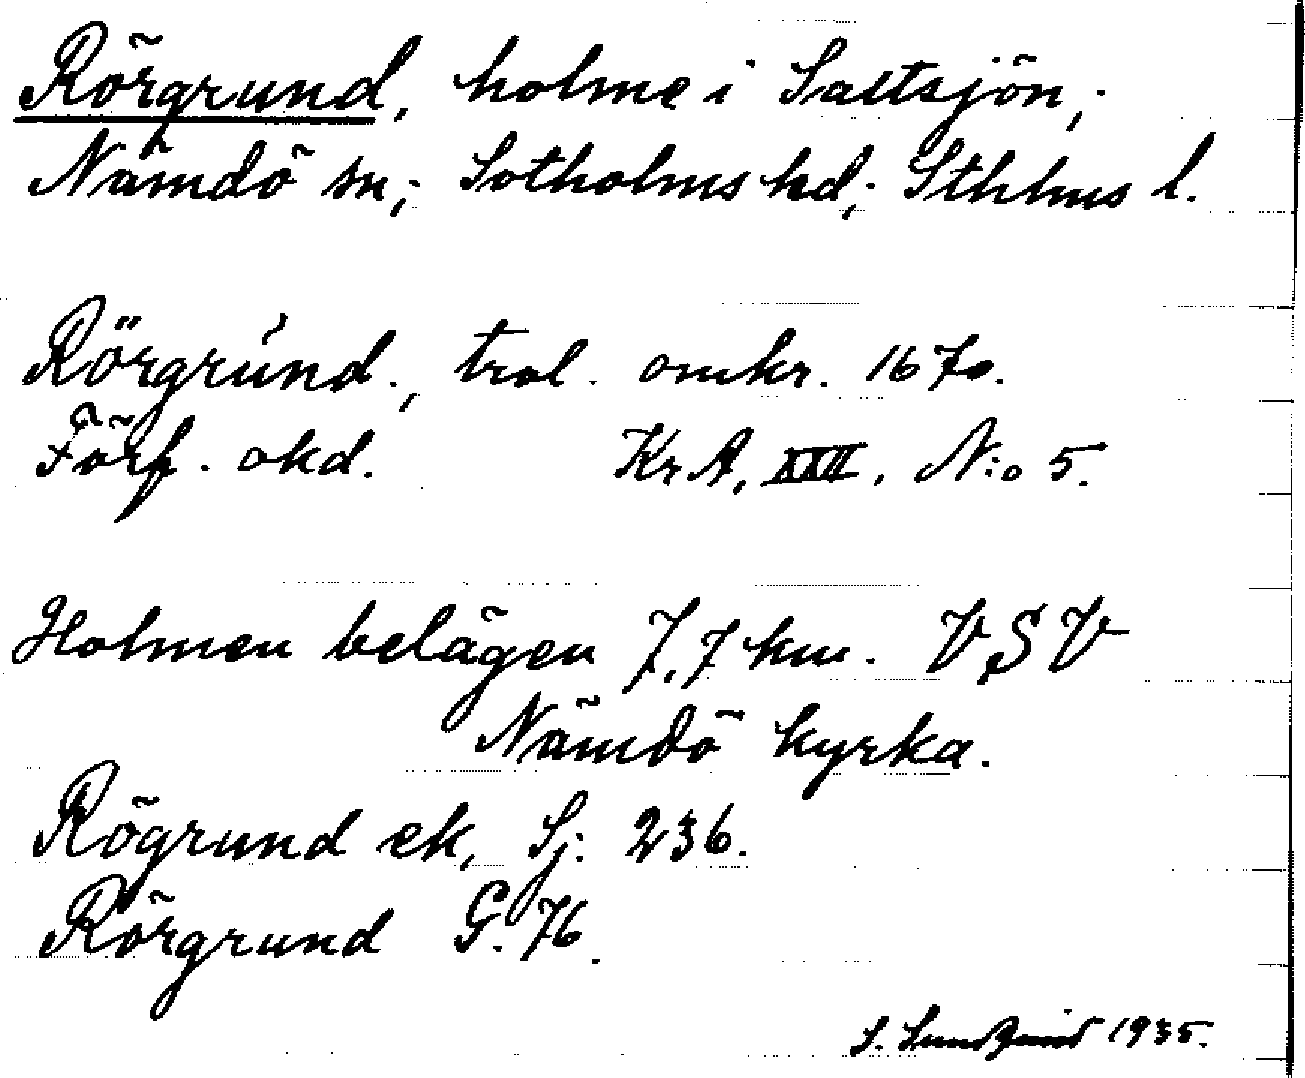 Rörgrund, holme i Saltsjön,
Nämdö sn; Sotholms hd; Sthlms l.
Rörgrund., trol. omkr. 1670.
Förf. okd. Kr A, XXII. N:o 5.
Holmen belägen 7,7 km. VSV
Nämdö kyrka.
Rögrund ek, Sj: 236.
Rörgrund G. 76.
S. Lundquist 1935.